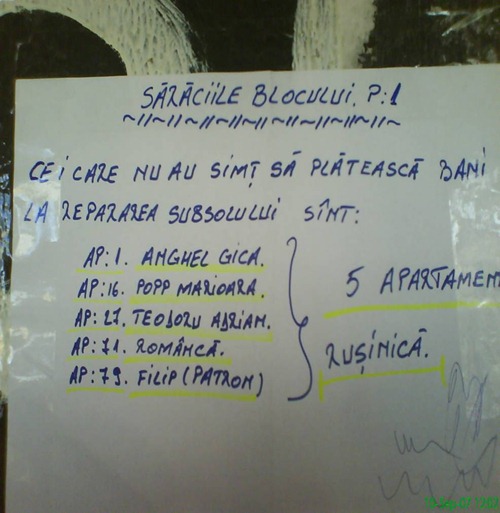 SĂRĂCIILE BLOCULUI. P:1
~//~//~//~//~//~//~//~//~//~
CEI CARE NU AU SIMȚ SĂ PLĂTEASCĂ BANI
LA REPARAREA SUBSOLULUI SÎNT:
AP:1. ANGHEL GICA.
AP:16. POPP MARIOARA.
AP:27. TEODORU ADRIAN.
AP:71. ROMÂNCĂ.
AP:79. FILIP (PATRON)
5 APARTAMEN
RUȘINICĂ.